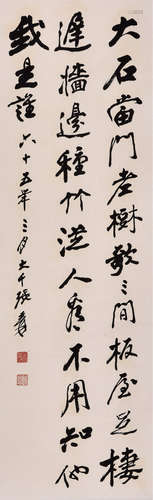 大石當門老樹欹三間板屋足棲
遲牆邊種竹從人看不用知他
我是誰 六十五年三月大千張爰